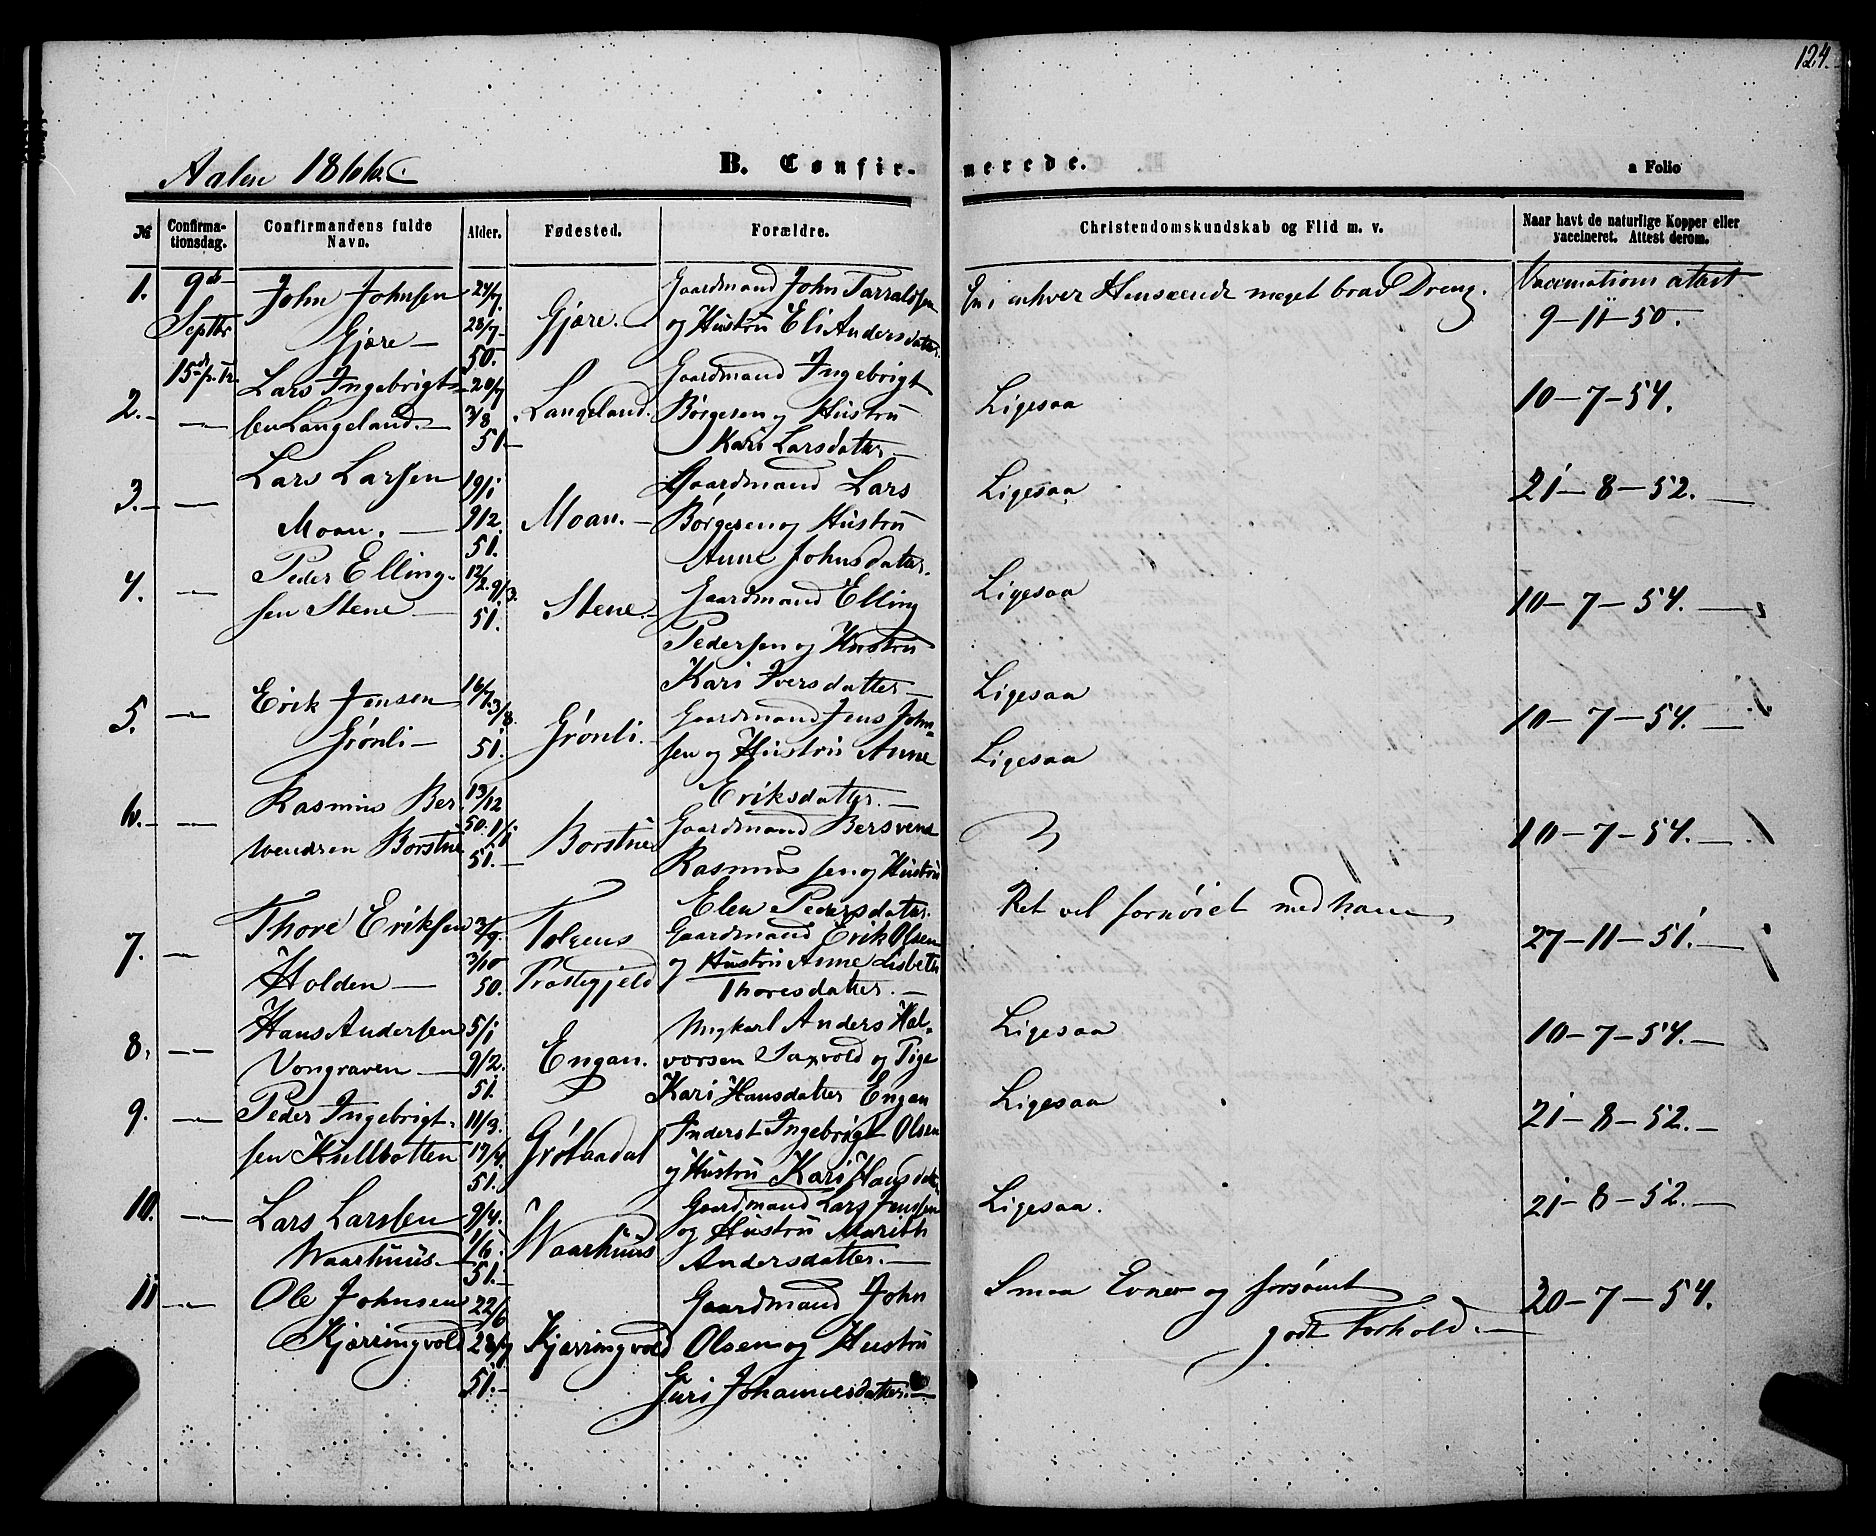 124.
Aalen 1866.
B. Confir- merede.
a Folio
№ Confirma-tionsdag. Confirmandens fulde Navn. Alder. Fødested. Forældre. Christendomskundskab og Flid m. v. Naar havt de naturlige Kopper eller vaccineret. Attest derom.
1. 9de Septbr 15de p. Tr. John Johnsen Gjøre — 24/7 28/7 50. Gjøre. Gaardmand John Tarraldsen og Hustru Eli Andersdatter. En i enhver Henseende meget brav Dreng. Vaccinations attest 9-11-50.
2. — Lars Ingebrigt-sen Langeland. — 20/7 3/8 51 — Langeland. Gaardmand Ingebrigt Børgesen og Hustru Kari Larsdatter — Ligesaa 10-7-54.
3. — Lars Larsen Moan. — 19/1 9/2 51. Moan. — Gaardmand Lars Børgesen og Hustru Anne Johnsdatter. Ligesaa 21-8-52. —
4. — Peder Elling-sen Stene — 12/2 9/3. 51. Stene. Gaardmand Elling Pedersen og Hustru Kari Iversdatter — Ligesaa 10-7-54. —
5. — Erik Jensen Grønli — 16/7 3/8. 51. Grønli. Gaardmand Jens John-sen og Hustru Anne Eriksdatter. — Ligesaa 10-7-54. —
6. — Rasmus Ber-svendsen Borstne 13/12 50. 51. — Borstne Gaardmand Bersvend Rasmussen og Hustru Elen Pedersdatter. Ligesaa 10-7-54. —
7. — Thore Eriksen Holden — 2/9. 3/10 50. Tolgens Præstegjeld Gaardmand Erik Olsen og Hustru Anne Lisbeth Thoresdatter. — Ret vel fornøiet med ham 27-11-51. —
8. — Hans Andersen Vongraven — 5/1 9/2. 51. Engan. Ungkarl Anders Hal-vorsen Saxvold og Pige Kari Hansdatter Engan Ligesaa 10-7-54. —
9. — Peder Ingebrigt-sen Kullbotten 11/3. 17/4. 51. Grøtaadal Inderst Ingebrigt Olsen og Hustru Kari Hansdatter Ligesaa 21-8-52. —
10. — Lars Larssen Waarhuus — 9/4. 1/6. 51. — Waarhuus Gaardmand Lars Jenssen og Hustru Marith Andersdatter. — Ligesaa. 21-8-52. —
11 — Ole Johnsen Kjærringvold 22/6 28/7 51. — Kjærringvold Gaardmand John Olsen og Hustru Guri Johannesdatter. — Smaa Evner og forsømt godt Forhold. — 20-7-54.